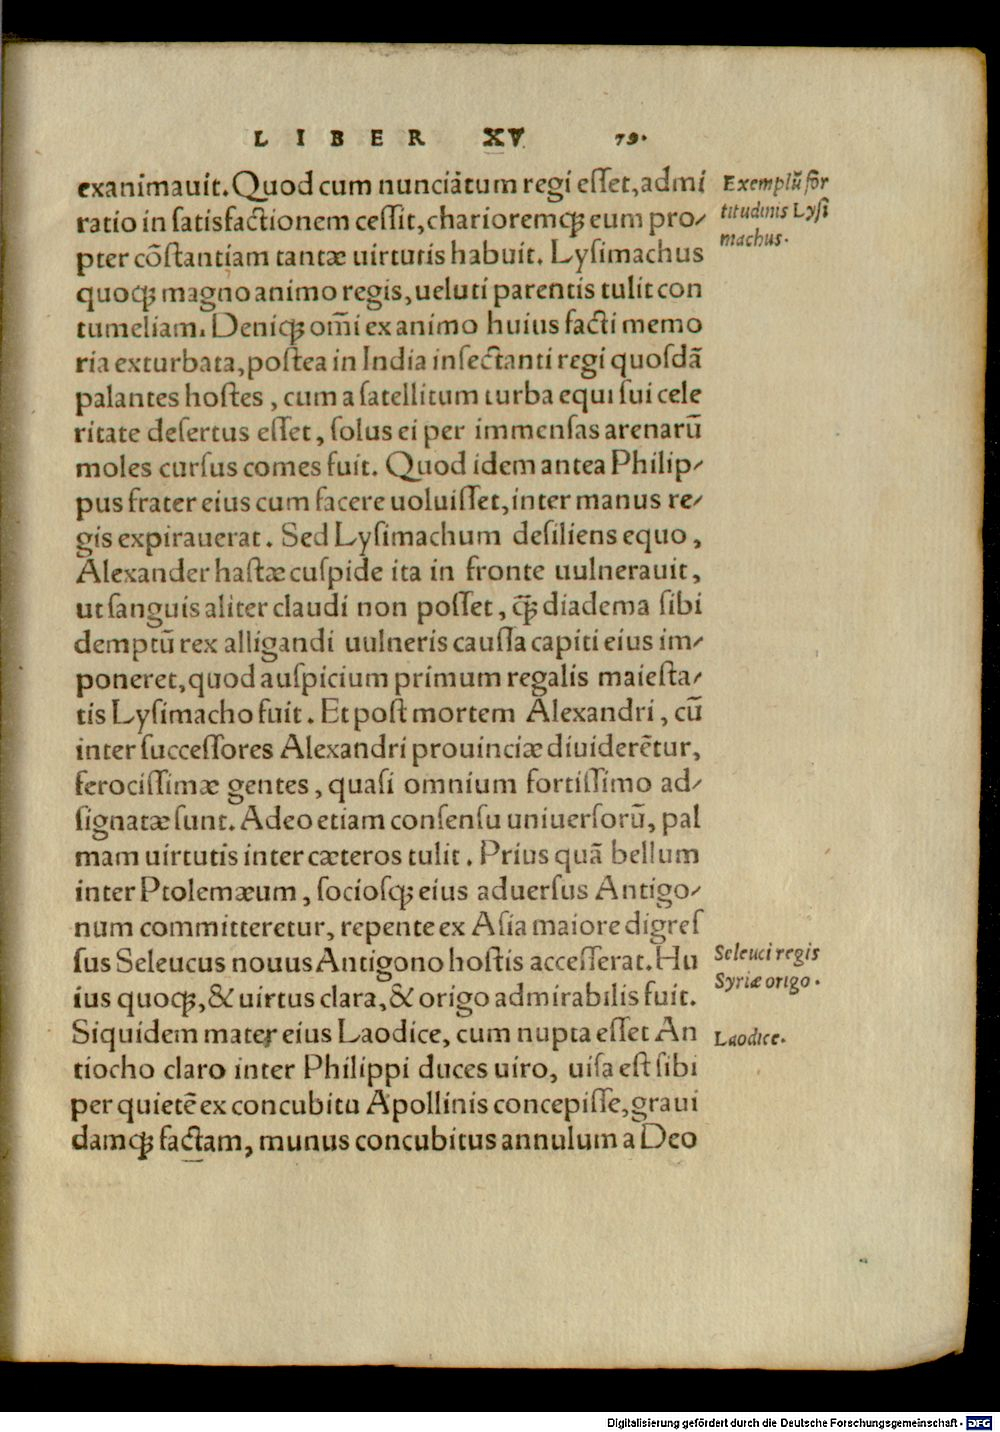 LIBER XV 79.
exanimauit. Quod cum nunciatum regi eſſet, admi
ratio in ſatisfactionem ceſſit, charioremq́; eum pro-
pter cõſtantiam tantæ uirtutis habuit. Lyſimachus
quoq; magno animo regis, ueluti parentis tulit con
tumeliam. Deniq; om̃i ex animo huius facti memo
ria exturbata, poſtea in India inſectanti regi quoſdã
palantes hoſtes, cum a ſatellitum turba equi ſui cele
ritate deſertus eſſet, ſolus ei per immenſas arenarũ
moles curſus comes fuit. Quod idem antea Philip-
pus frater eius cum facere uoluiſſet, inter manus re-
gis expirauerat. Sed Lyſimachum deſiliens equo,
Alexander haſtæ cuſpide ita in fronte uulnerauit,
ut ſanguis aliter claudi non poſſet, q̃; diadema ſibi
demptũ rex alligandi uulneris cauſſa capiti eius im-
poneret, quod auſpicium primum regalis maieſta-
tis Lyſimacho fuit. Et poſt mortem Alexandri, cũ
inter ſucceſſores Alexandri prouinciæ diuiderẽtur,
ferociſſimæ gentes, quaſi omnium fortiſſimo ad-
ſignatæ ſunt. Adeo etiam conſenſu uniuerſorũ, pal
mam uirtutis inter cæteros tulit. Prius quã bellum
inter Ptolemæum, ſocioſq; eius aduerſus Antigo-
num committeretur, repente ex Aſia maiore digreſ
ſus Seleucus nouus Antigono hoſtis acceſſerat. Hu
ius quoq;, & uirtus clara, & origo admirabilis fuit.
Siquidem mater eius Laodice, cum nupta eſſet An
tiocho claro inter Philippi duces uiro, uiſa eſt ſibi
per quietẽ ex concubitu Apollinis concepiſſe, graui
damq; factam, munus concubitus annulum a Deo
Exemplũ for
titudinis Lyſi
machus.
Seleuci regis
Syriæ origo.
Laodice.
Digitalisierung gefördert durch die Deutsche Forschungsgemeinschaft - DFG